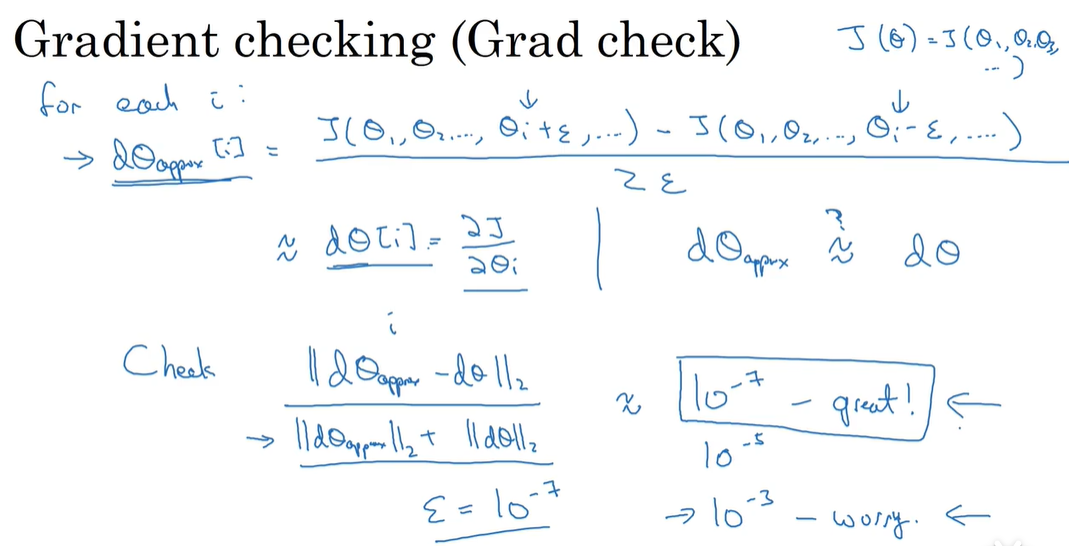 Gradient checking (Grad check)
J(θ) = J(θ₁, θ₂, θ₃, ...)
for each i:
→ dθapprox[i] = (J(θ₁, θ₂, ..., θᵢ+ε, ...) - J(θ₁, θ₂, ..., θᵢ-ε, ....)) / 2ε
≈ dθ[i] = ∂J/∂θᵢ | dθapprox ≈? dθ
i
Check ||dθapprox - dθ||₂ / (||dθapprox||₂ + ||dθ||₂) ≈ 10⁻⁷ - great! ←
10⁻⁵
ε = 10⁻⁷
→ 10⁻³ - worry. ←